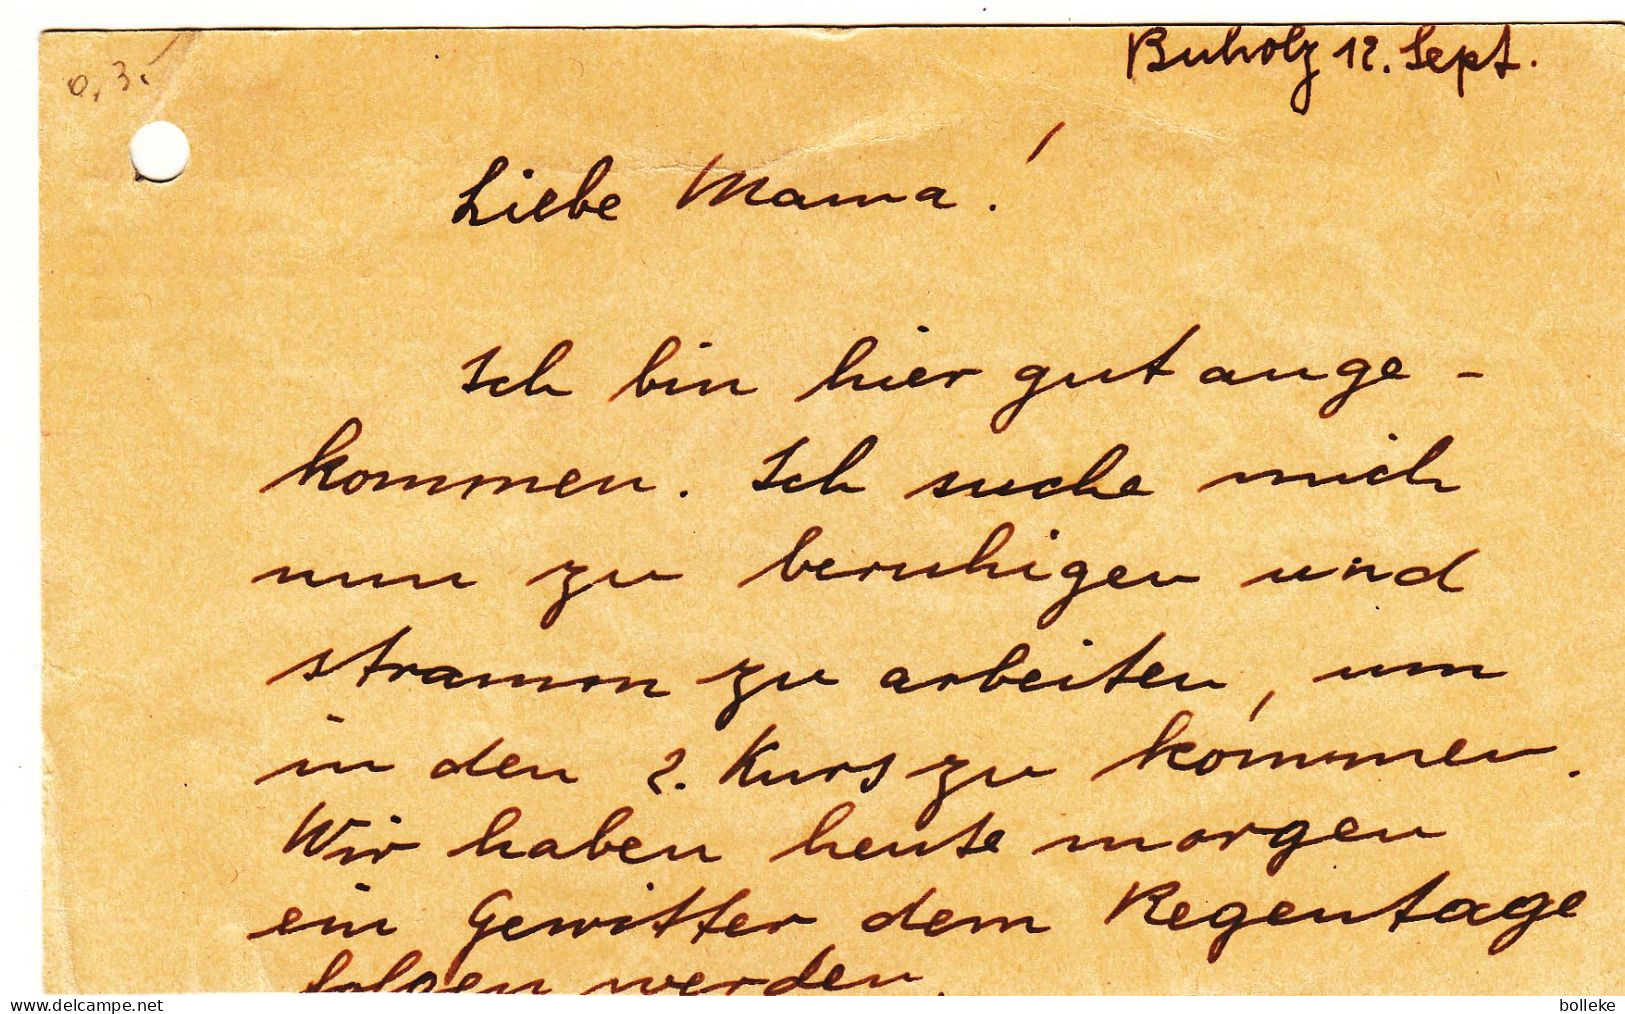 Buholz 12. Sept.
0,3.
Liebe Mama!
Ich bin hier gut ange-
kommen. Ich suche mich
nun zu beruhigen und
stramm zu arbeiten, um
in den 2. Kurs zu kommen.
Wir haben heute morgen
ein Gewitter dem Regentage
folgen werden.
www.delcampe.net
bolleke